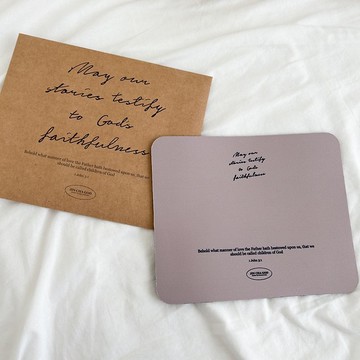 May our
stories testify
to God's
faithfulness
Behold what manner of love the Father hath bestowed upon us, that we
should be called children of God
May our
stories testify
to God's
faithfulness
Behold what manner of love the Father hath bestowed upon us, that we
should be called children of God
1 John 3:1